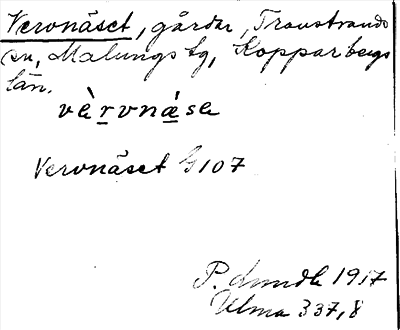 Vervnäset, gårdar, Transtrands
sn, Malungs tg, Kopparbergs
län.
vèrvnáse
Vervnäset G 107
P. Lindh 1917
Ulma 337,8